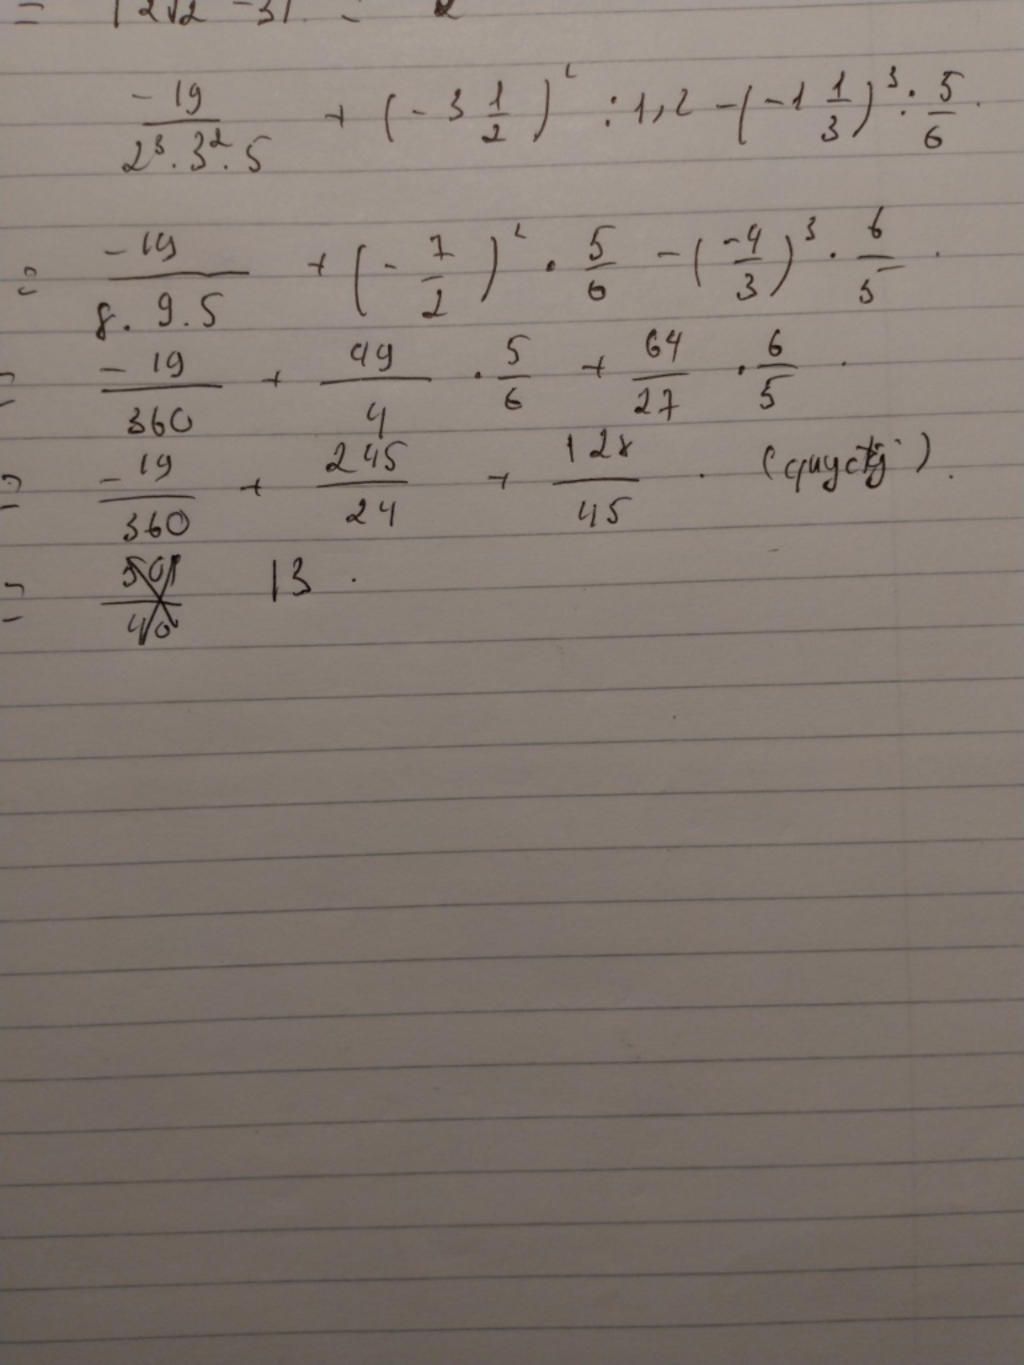 = |2√2 - 3|. =
-19/(2³.3².5) + (-3 1/2)² : 1,2 - (-1 1/3)³ : 5/6.
= -19/(8.9.5) + (-7/2)² . 5/6 - (-4/3)³ . 6/5.
= -19/360 + 49/4 . 5/6 + 64/27 . 6/5.
= -19/360 + 245/24 + 128/45. (quy
= 13.